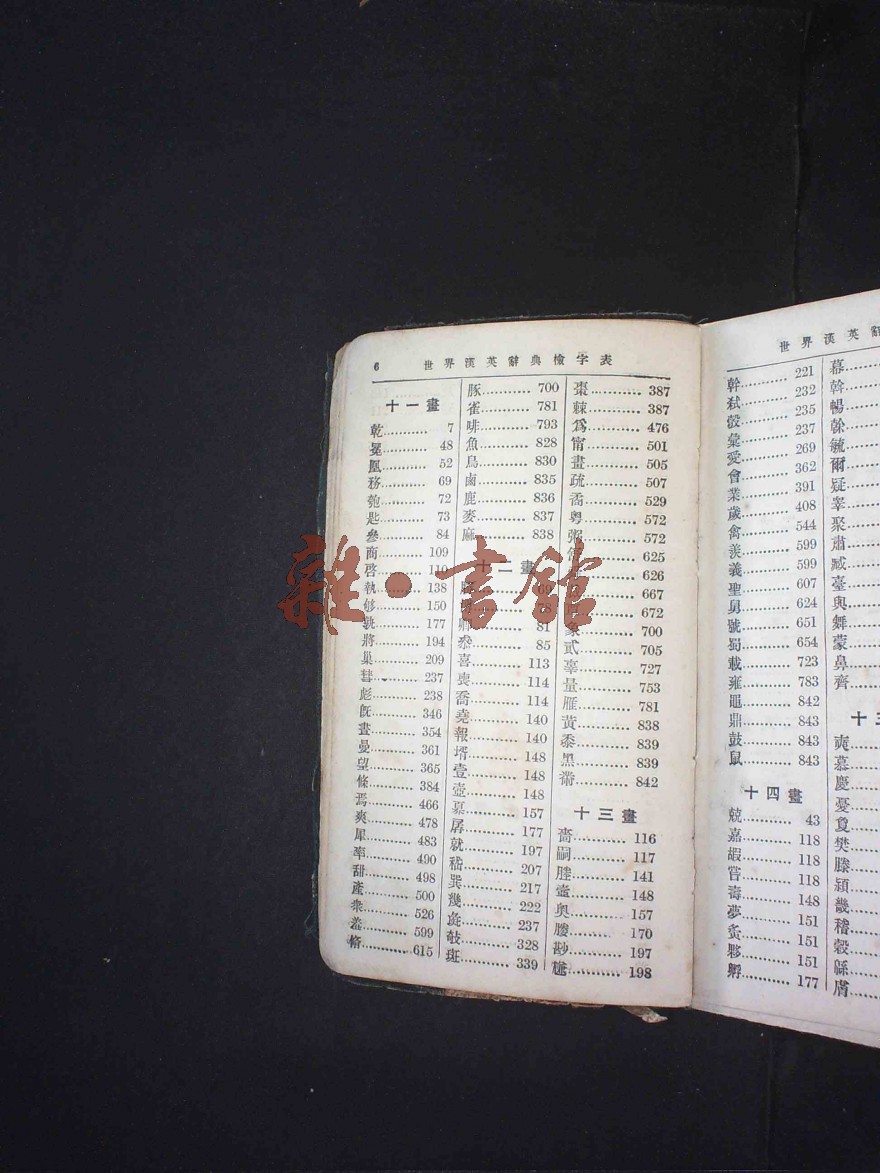 6 世界漢英辭典檢字表
十一畫
乾 7
冕 48
凰 52
務 69
匏 72
匙 73
參 84
商 109
啓 110
執 138
夠 150
孰 177
將 194
巢 209
彗 237
彪 238
旣 346
晝 354
曼 361
望 365
條 384
焉 466
爽 478
犀 483
率 490
甜 498
產 500
衆 526
羞 599
脩 615
豚 700
雀 781
啡 793
魚 828
鳥 830
鹵 835
鹿 836
麥 837
麻 838
十二畫
69
78
卿 81
叅 85
喜 113
喪 114
喬 114
堯 140
報 140
壻 148
壹 148
壺 148
157
孱 177
就 197
嵇 207
巽 217
幾 222
彘 237
鼓 328
斑 339
棗 387
棘 387
爲 476
甯 501
畫 505
疏 507
矞 529
粤 572
粥 572
625
626
667
672
象 700
貳 705
辜 727
量 753
雁 781
黃 838
黍 839
黑 839
黹 842
十三畫
嗇 116
嗣 117
塍 141
壼 148
奥 157
媵 170
尠 197
尲 198
世界漢英
幹 221
弑 232
彀 235
彙 237
愛 269
會 362
業 391
歲 408
禽 544
羨 599
義 599
聖 607
舅 624
號 651
蜀 654
載 723
雍 783
黽 842
鼎 843
鼓 843
鼠 843
十四畫
兢 43
嘉 118
嘏 118
嘗 118
壽 148
夢 151
夤 151
夥 151
孵 177
幕
幹
暢
榦
毓
爾
疑
睾
聚
肅
臧
臺
與
舞
蒙
鼻
齊
十
奭
慕
慶
憂
樊
滕
潁
畿
稽
穀
緜
膚
雜·書館